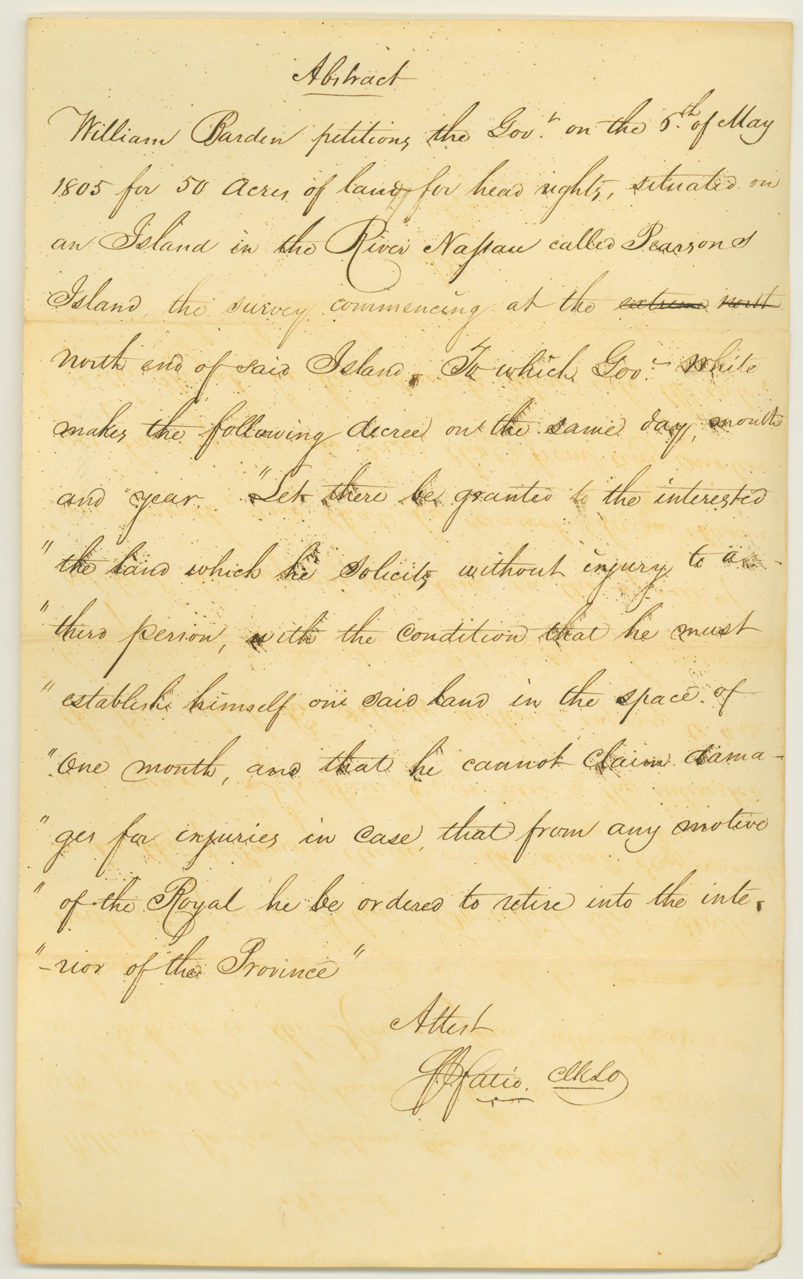 Abstract
William Barden petitions the Gov.r on the 6.th of May
1805 for 50 Acres of land for head rights, situated on
an Island in the River Nassau called Pearsons
Island, the survey commencing at the extreme north
north end of said Island. To which Gov.r White
makes the following decree on the same day, month
and year. "Let there be granted to the interested
" the land which he solicits without injury to a
" third person, with the condition that he must
" establish himself on said land in the space of
" One month, and that he cannot claim dama-
" ges for injuries in case, that from any motive
" of the Royal he be ordered to retire into the inte-
" -rior of the Province"
Attest
F J Fatio. Clk L O